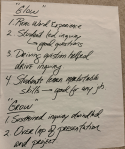 "Glow"
1. Real Work Experience
2. Student led inquiry
- good questions
3. Driving question helped
drive inquiry
4. Students learn marketable
skills → good for any job
"Grow"
1. Sustained inquiry
2. Overlap of presentation
and project